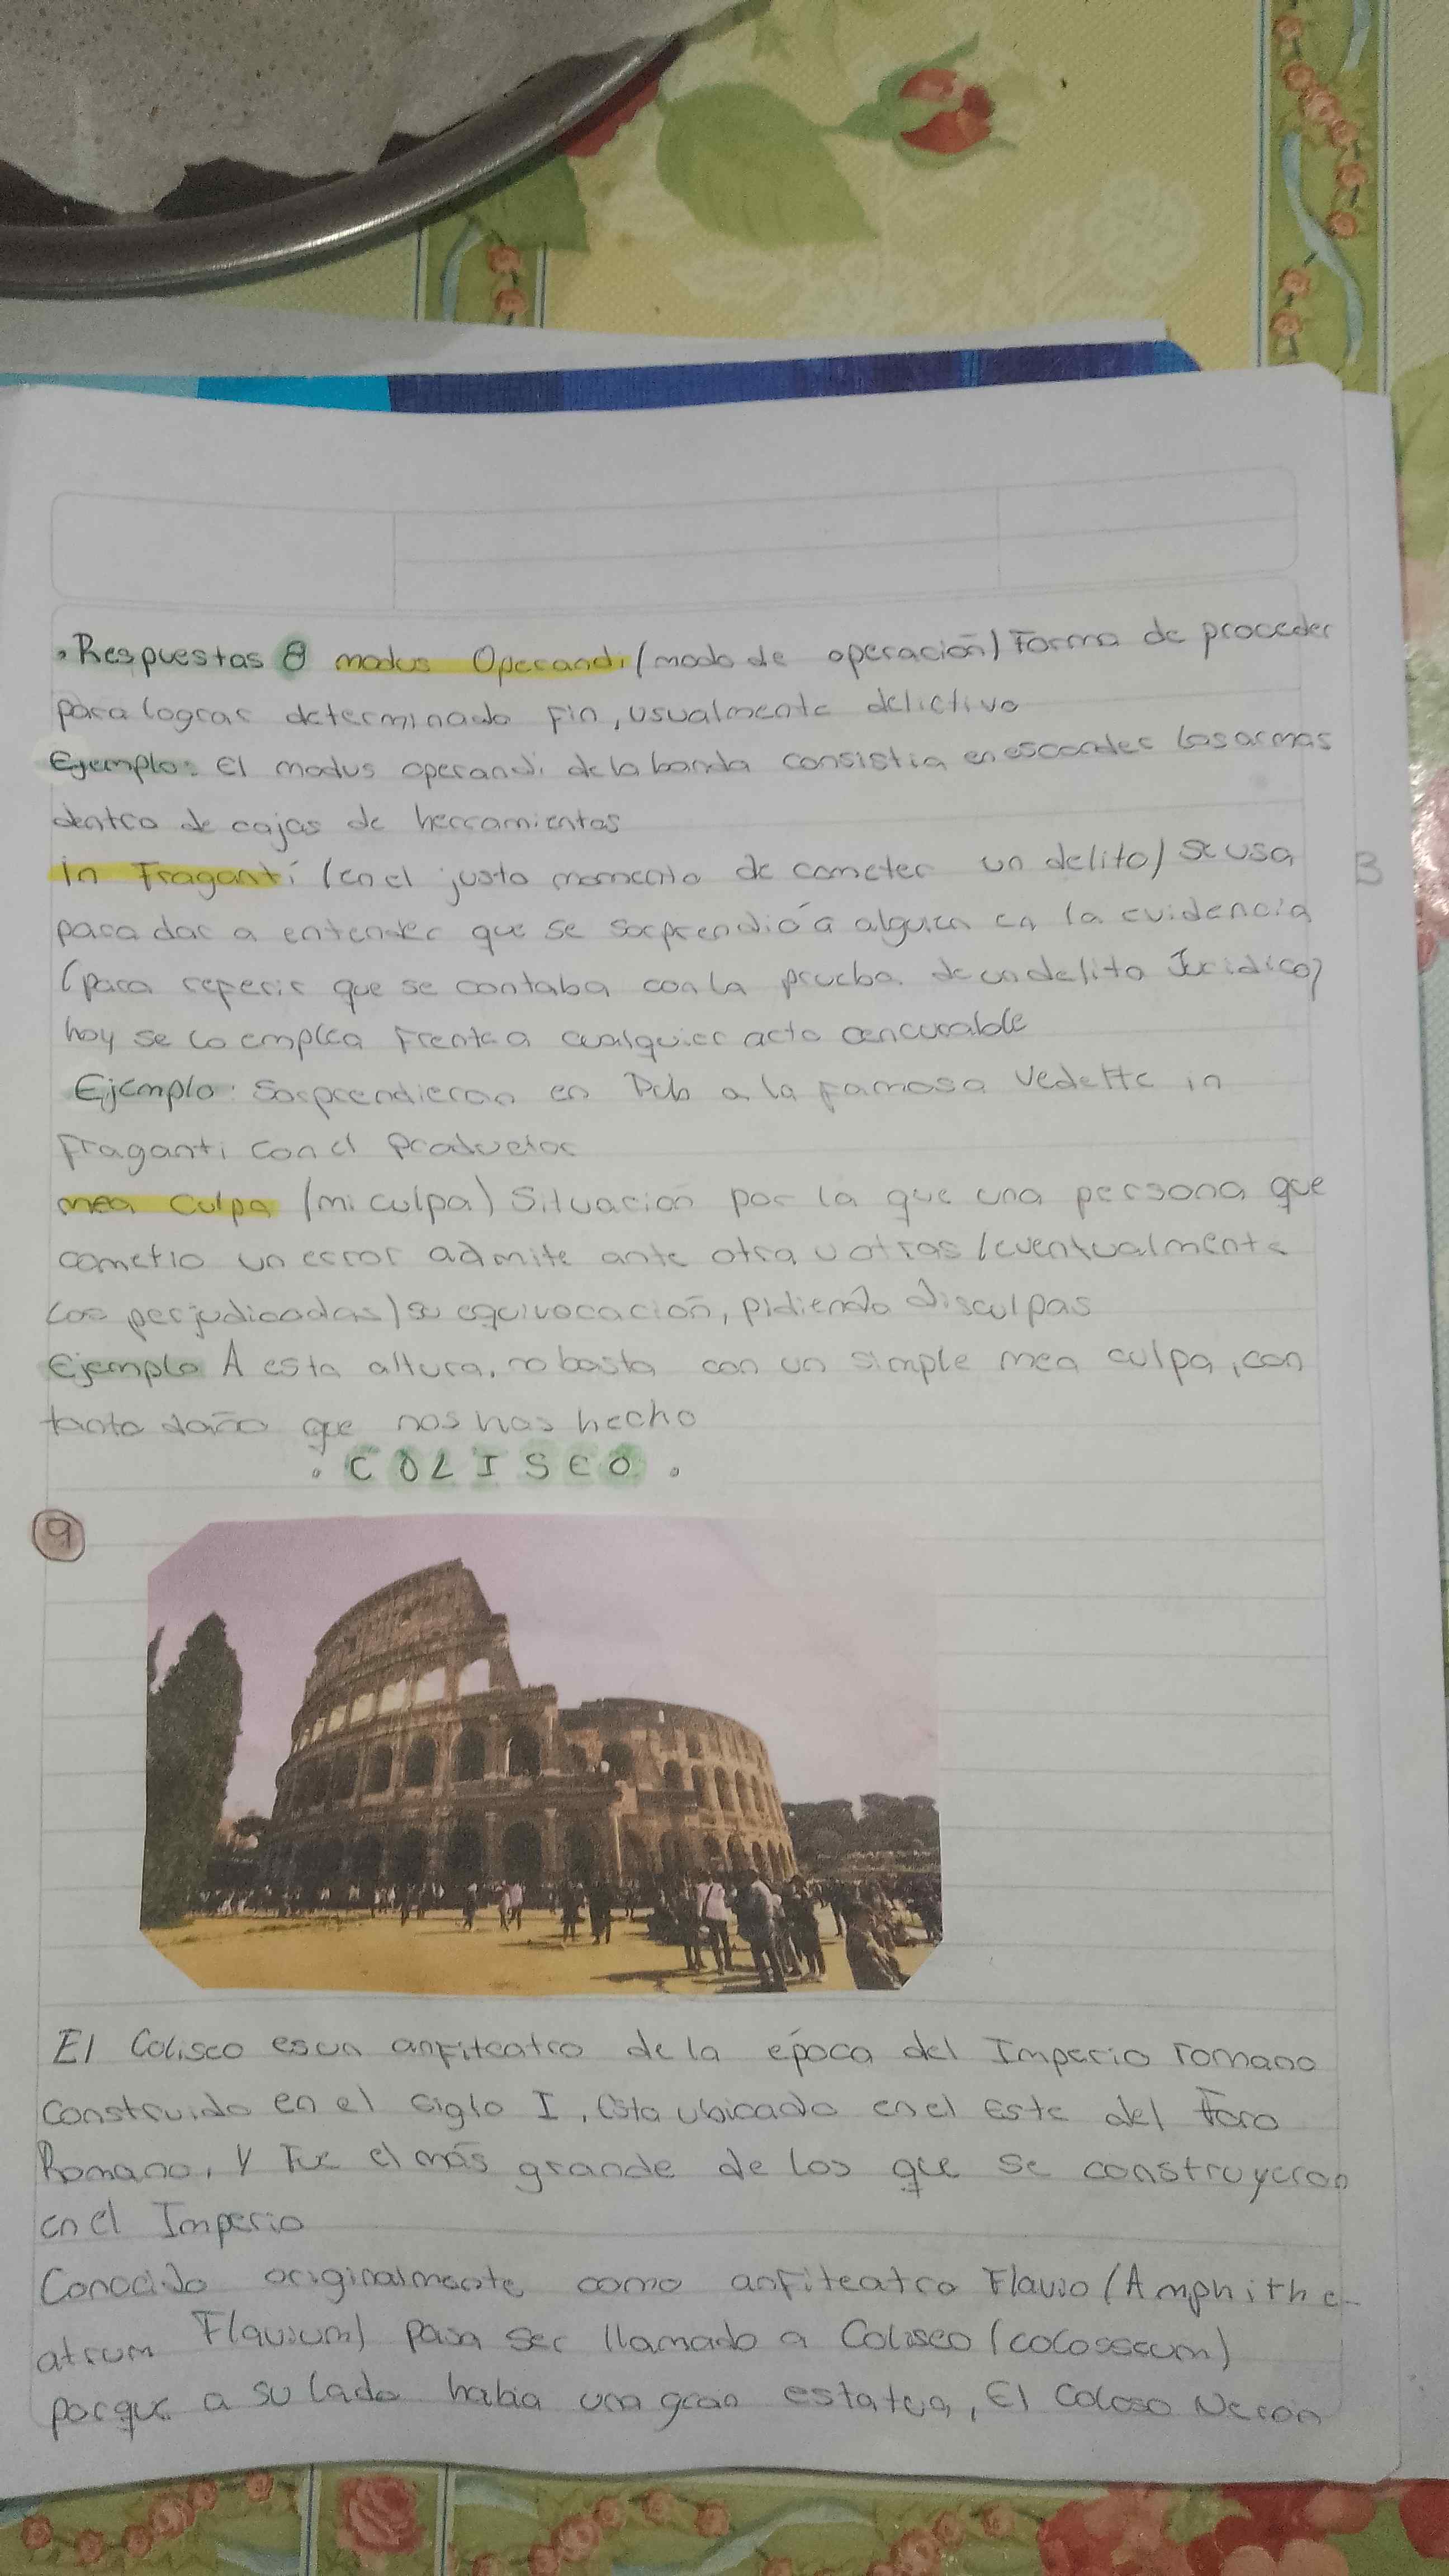 • Respuestas 8 modus Operandi (modo de operación) Forma de proceder
para lograr determinado fin, usualmente delictivo
Ejemplo: El modus operandi de la banda consistia en esconder las armas
dentro de cajas de herramientas
in Fraganti (en el justo momento de cometer un delito) se usa
para dar a entender que se sorprendió a alguien en la evidencia
(para referir que se contaba con la prueba de un delito Juridico)
hoy se lo emplea frente a cualquier acto cencurable
Ejemplo: Sorprendieron en Pub a la famosa Vedette in
fraganti con el Productor
mea culpa (mi culpa) Situación por la que una persona que
cometio un error admite ante otra u otras (eventualmente
los perjudicadas) su equivocación, pidiendo disculpas
Ejemplo A esta altura, no basta con un simple mea culpa, con
tanto daño que nos has hecho
• COLISEO •
9
El Coliseo es un anfiteatro de la época del Imperio romano
Construido en el siglo I, Esta ubicado en el Este del Foro
Romano, y Fue el más grande de los que se construyeron
en el Imperio
Conocido originalmente como anfiteatro Flavio (Amphithe-
atrum Flavium) pasa ser llamado a Coliseo (colosseum)
porque a su lado habia una gran estatua, El Coloso Neron
B